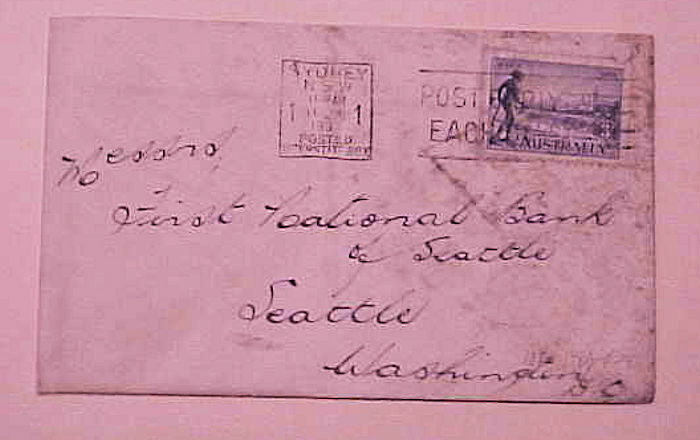 SYDNEY
N.S.W
1 1
POSTED
POST
EACH
AUSTRALIA
Messrs
First National Bank
of Seattle
Seattle
Washington D C